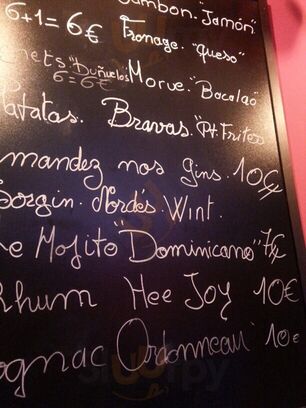 Jambon. "Jamón"
6+1=6€ Fromage. "Queso"
nets "Buñuelos Morue. "Bacalao"
6=6€
Patatas. Bravas. "Pt. Frites
mandez nos gins. 10€
Sorgin. Nordés. Wint.
e Mojito "Dominicano" 7€
Rhum Hee Joy 10€
ognac Ordonneau 10€